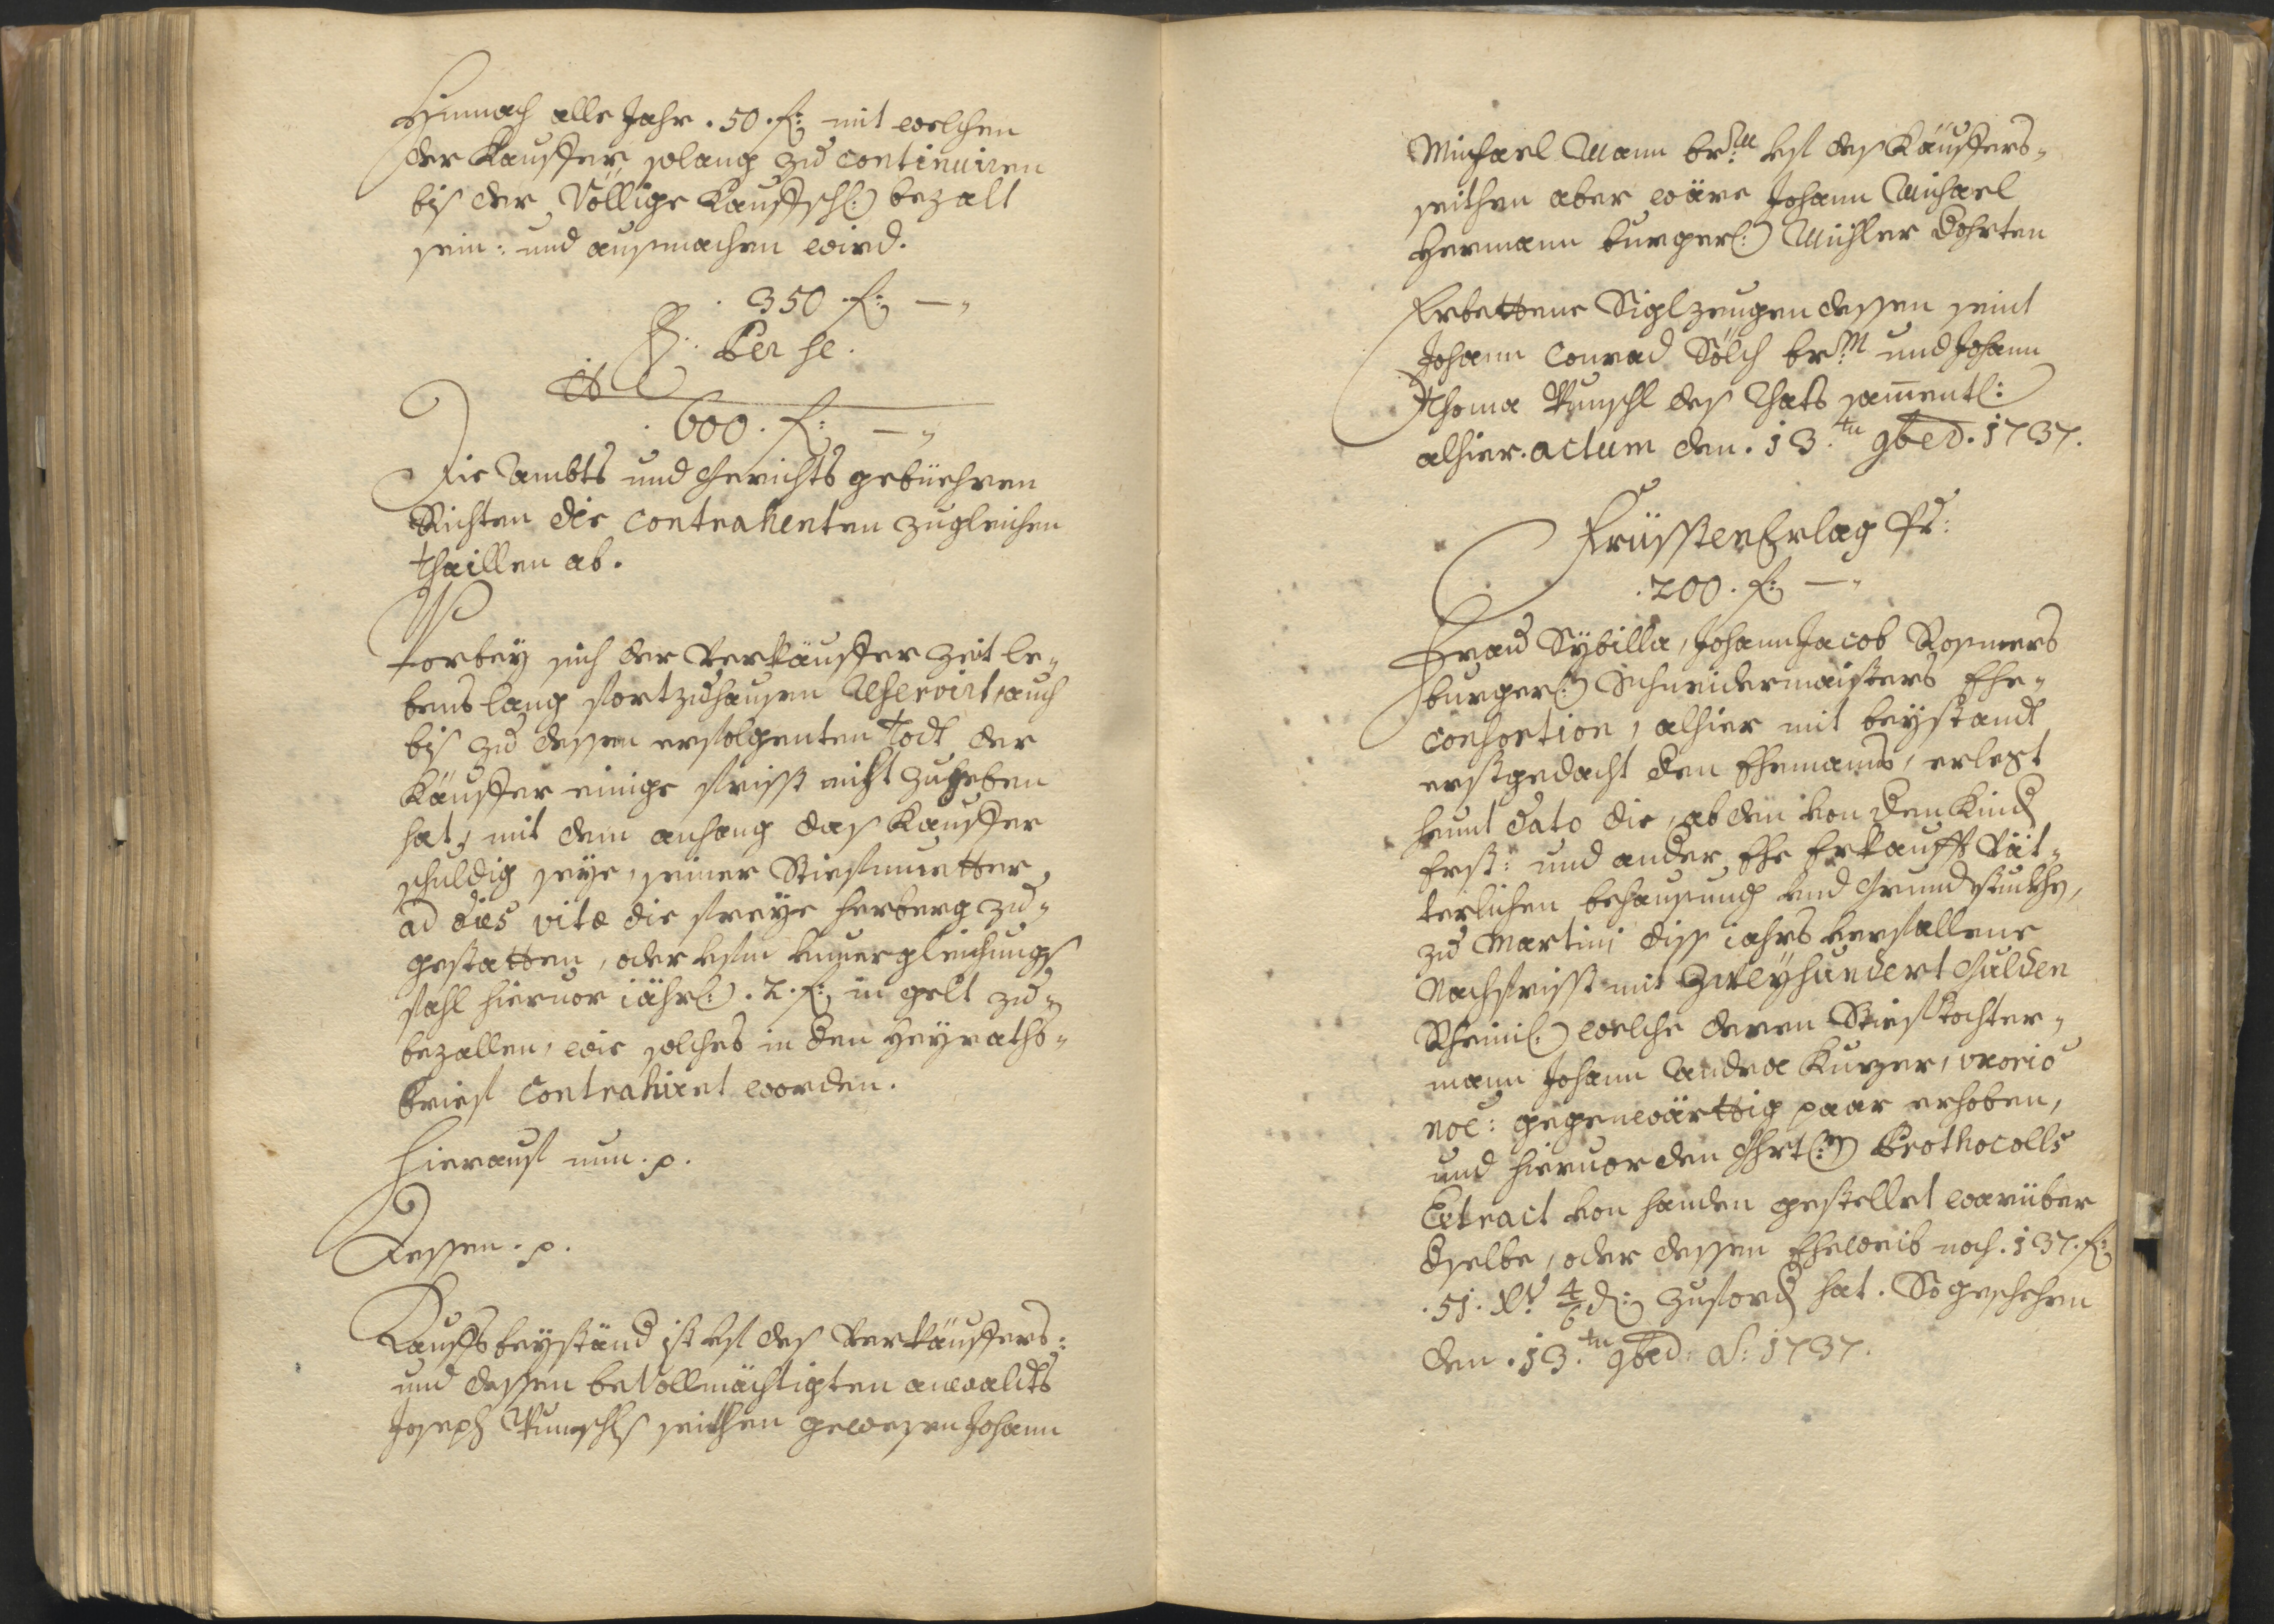 Hinnach alle Jahr . 50 . f: mit welchen
der Kauffer solang zu continuiren
biß der Völlige Kauffsch: bezalt
sein: und außmachen wird.
. 350 f: —
P: Per se.
600 . f: —
Die Ambts und Gerichts gebüehren
Richten die Contrahenten zugleichen
Thaillen ab.
Worbey sich der Verkäuffer Zeit le-
bens lang fortzuhausen reservirt, auch
biß zu dessen erfolgenten Todt der
Käuffer einige frisst nicht zugeben
hat, mit dem anhang das Kauffer
schuldig seye, seiner Stiefmuetter
ad dies vitæ die freye herberg zu-
gestatten, oder
fahl hieruor jährl: . 2 . f: in gelt zu-
bezallen, wie solches in den Heyraths-
brief Contrahiret worden.
Hierauf nun . p.
Dessen . p.
Kauffs beyständ ist auf des Verkäuffers:
und dessen beVollmächtigten anwaldts
Joseph Punschls seithen gewesen Johann
Michael Mann br: auf des Käuffers-
seithen aber wäre Johann Michael
Hermann burgerl: Müller dohrten
Erbettene Siglzeugen dessen seint
Johann Conrad Sölch br: und Johann
Thoma Punschl des Raths samentl:
alhier. actum den . 13.tn 9bed. 1737.
Früssten Erlag pr:
. 200 . f: —
Frau Sybilla, Johann Jacob Rosners
burgerl: Schneidermaisters Ehe-
consortion, alhier mit beystandt
erstgedacht den Ehemanns, erlegt
heunt dato die, ab den von den Kindern
Erst: und ander Ehe Erkaufft Vät-
terlichen behausung und Grundstuckhen,
zu Martini diss jahrs verfallene
Nachfrisst mit Zweyhundert Gulden
Rheinl: welche deren Stieftochter-
mann Johann Andrea Kurzer, uxorio
noe: gegenwärttig paar erhoben,
und hieruor den Prothocolls
Extract von handen gestellet worüber
dselbe, oder dessen Eheweib noch . 137 . f:
. 51 . Xr 4/6 d: zufordern hat. So geschehen
den . 13.tn 9bed: A: 1737.